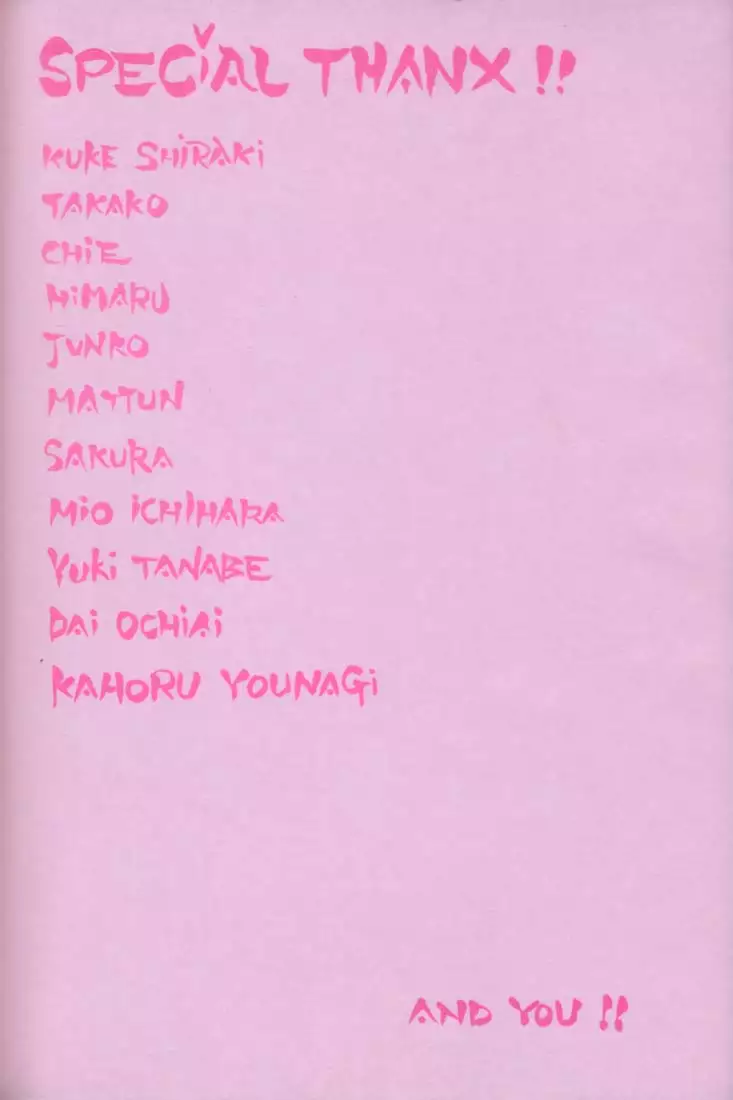 SPECIAL THANX !!
KUKE SHIRAKI
TAKAKO
CHIE
HIMARU
JUNKO
MAYTUN
SAKURA
MIO ICHIHARA
YUKI TANABE
DAI OCHIAI
KAHORU YOUNAGI
AND YOU !!